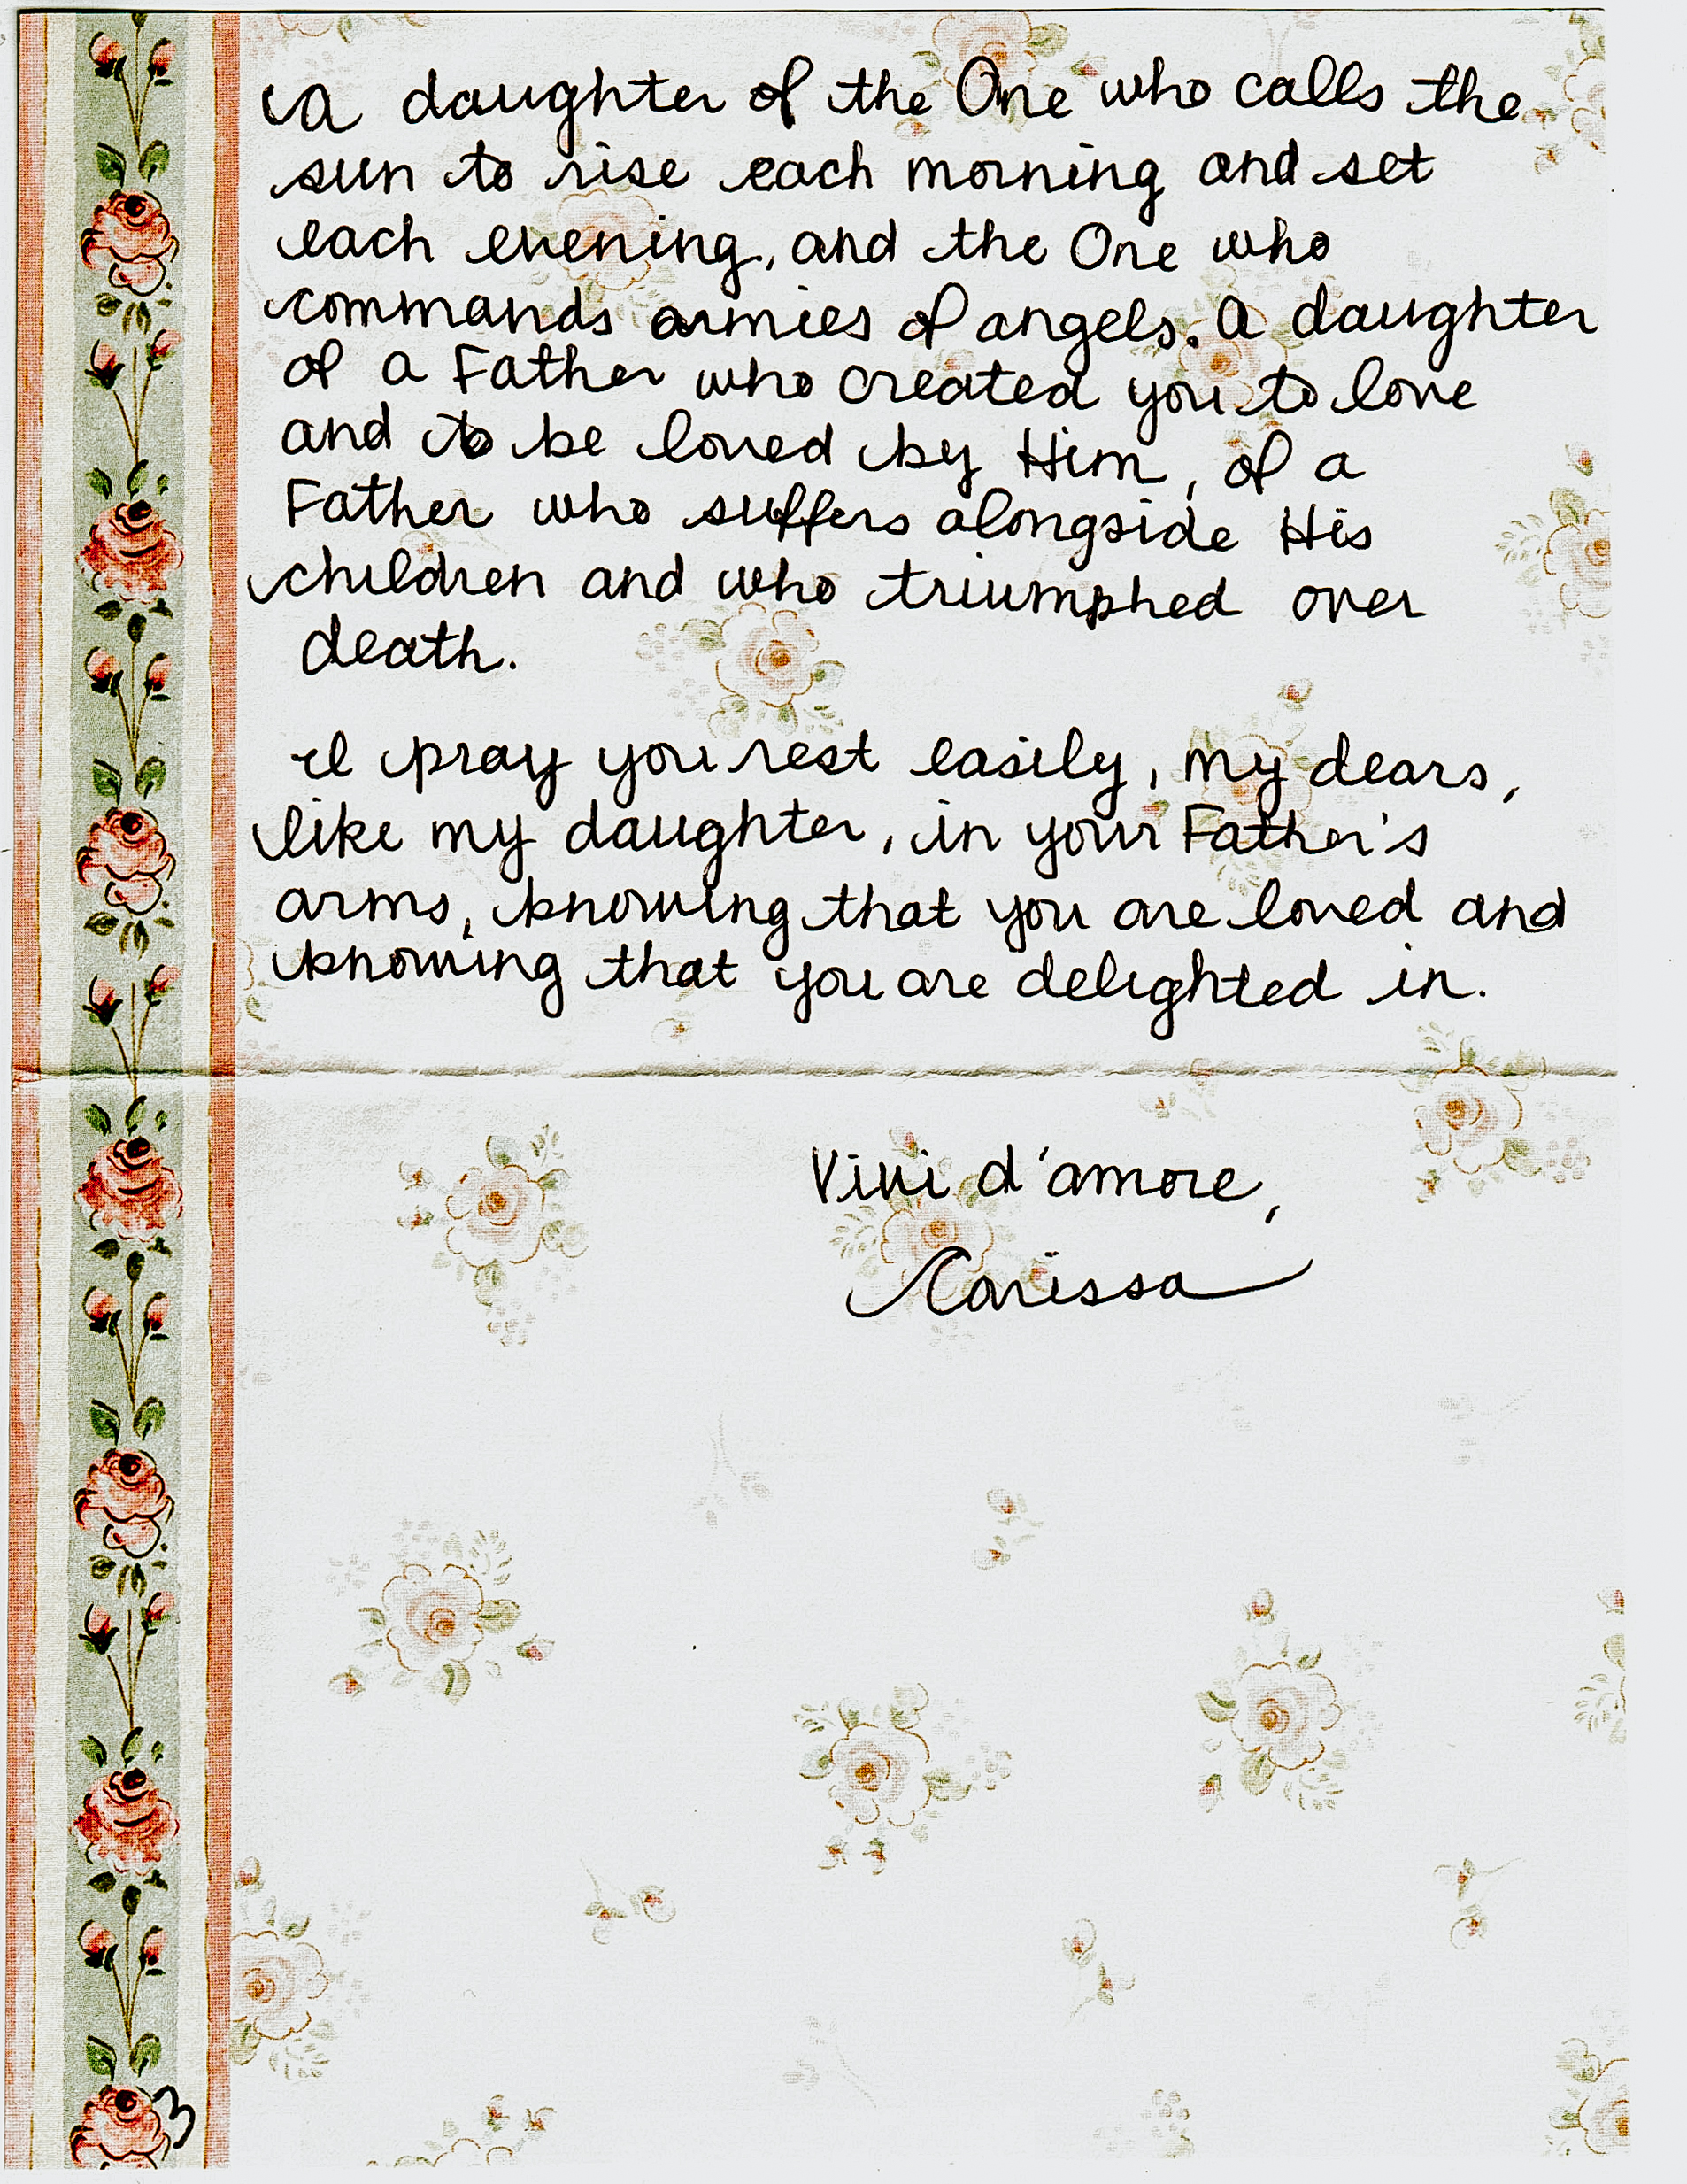 a daughter of the One who calls the
sun to rise each morning and set
each evening, and the One who
commands armies of angels. A daughter
of a Father who created you to love
and to be loved by Him, of a
Father who suffers alongside His
children and who triumphed over
death.
I pray you rest easily, my dears,
like my daughter, in your Father's
arms, knowing that you are loved and
knowing that you are delighted in.
Vivi d'amore,
Carissa
3